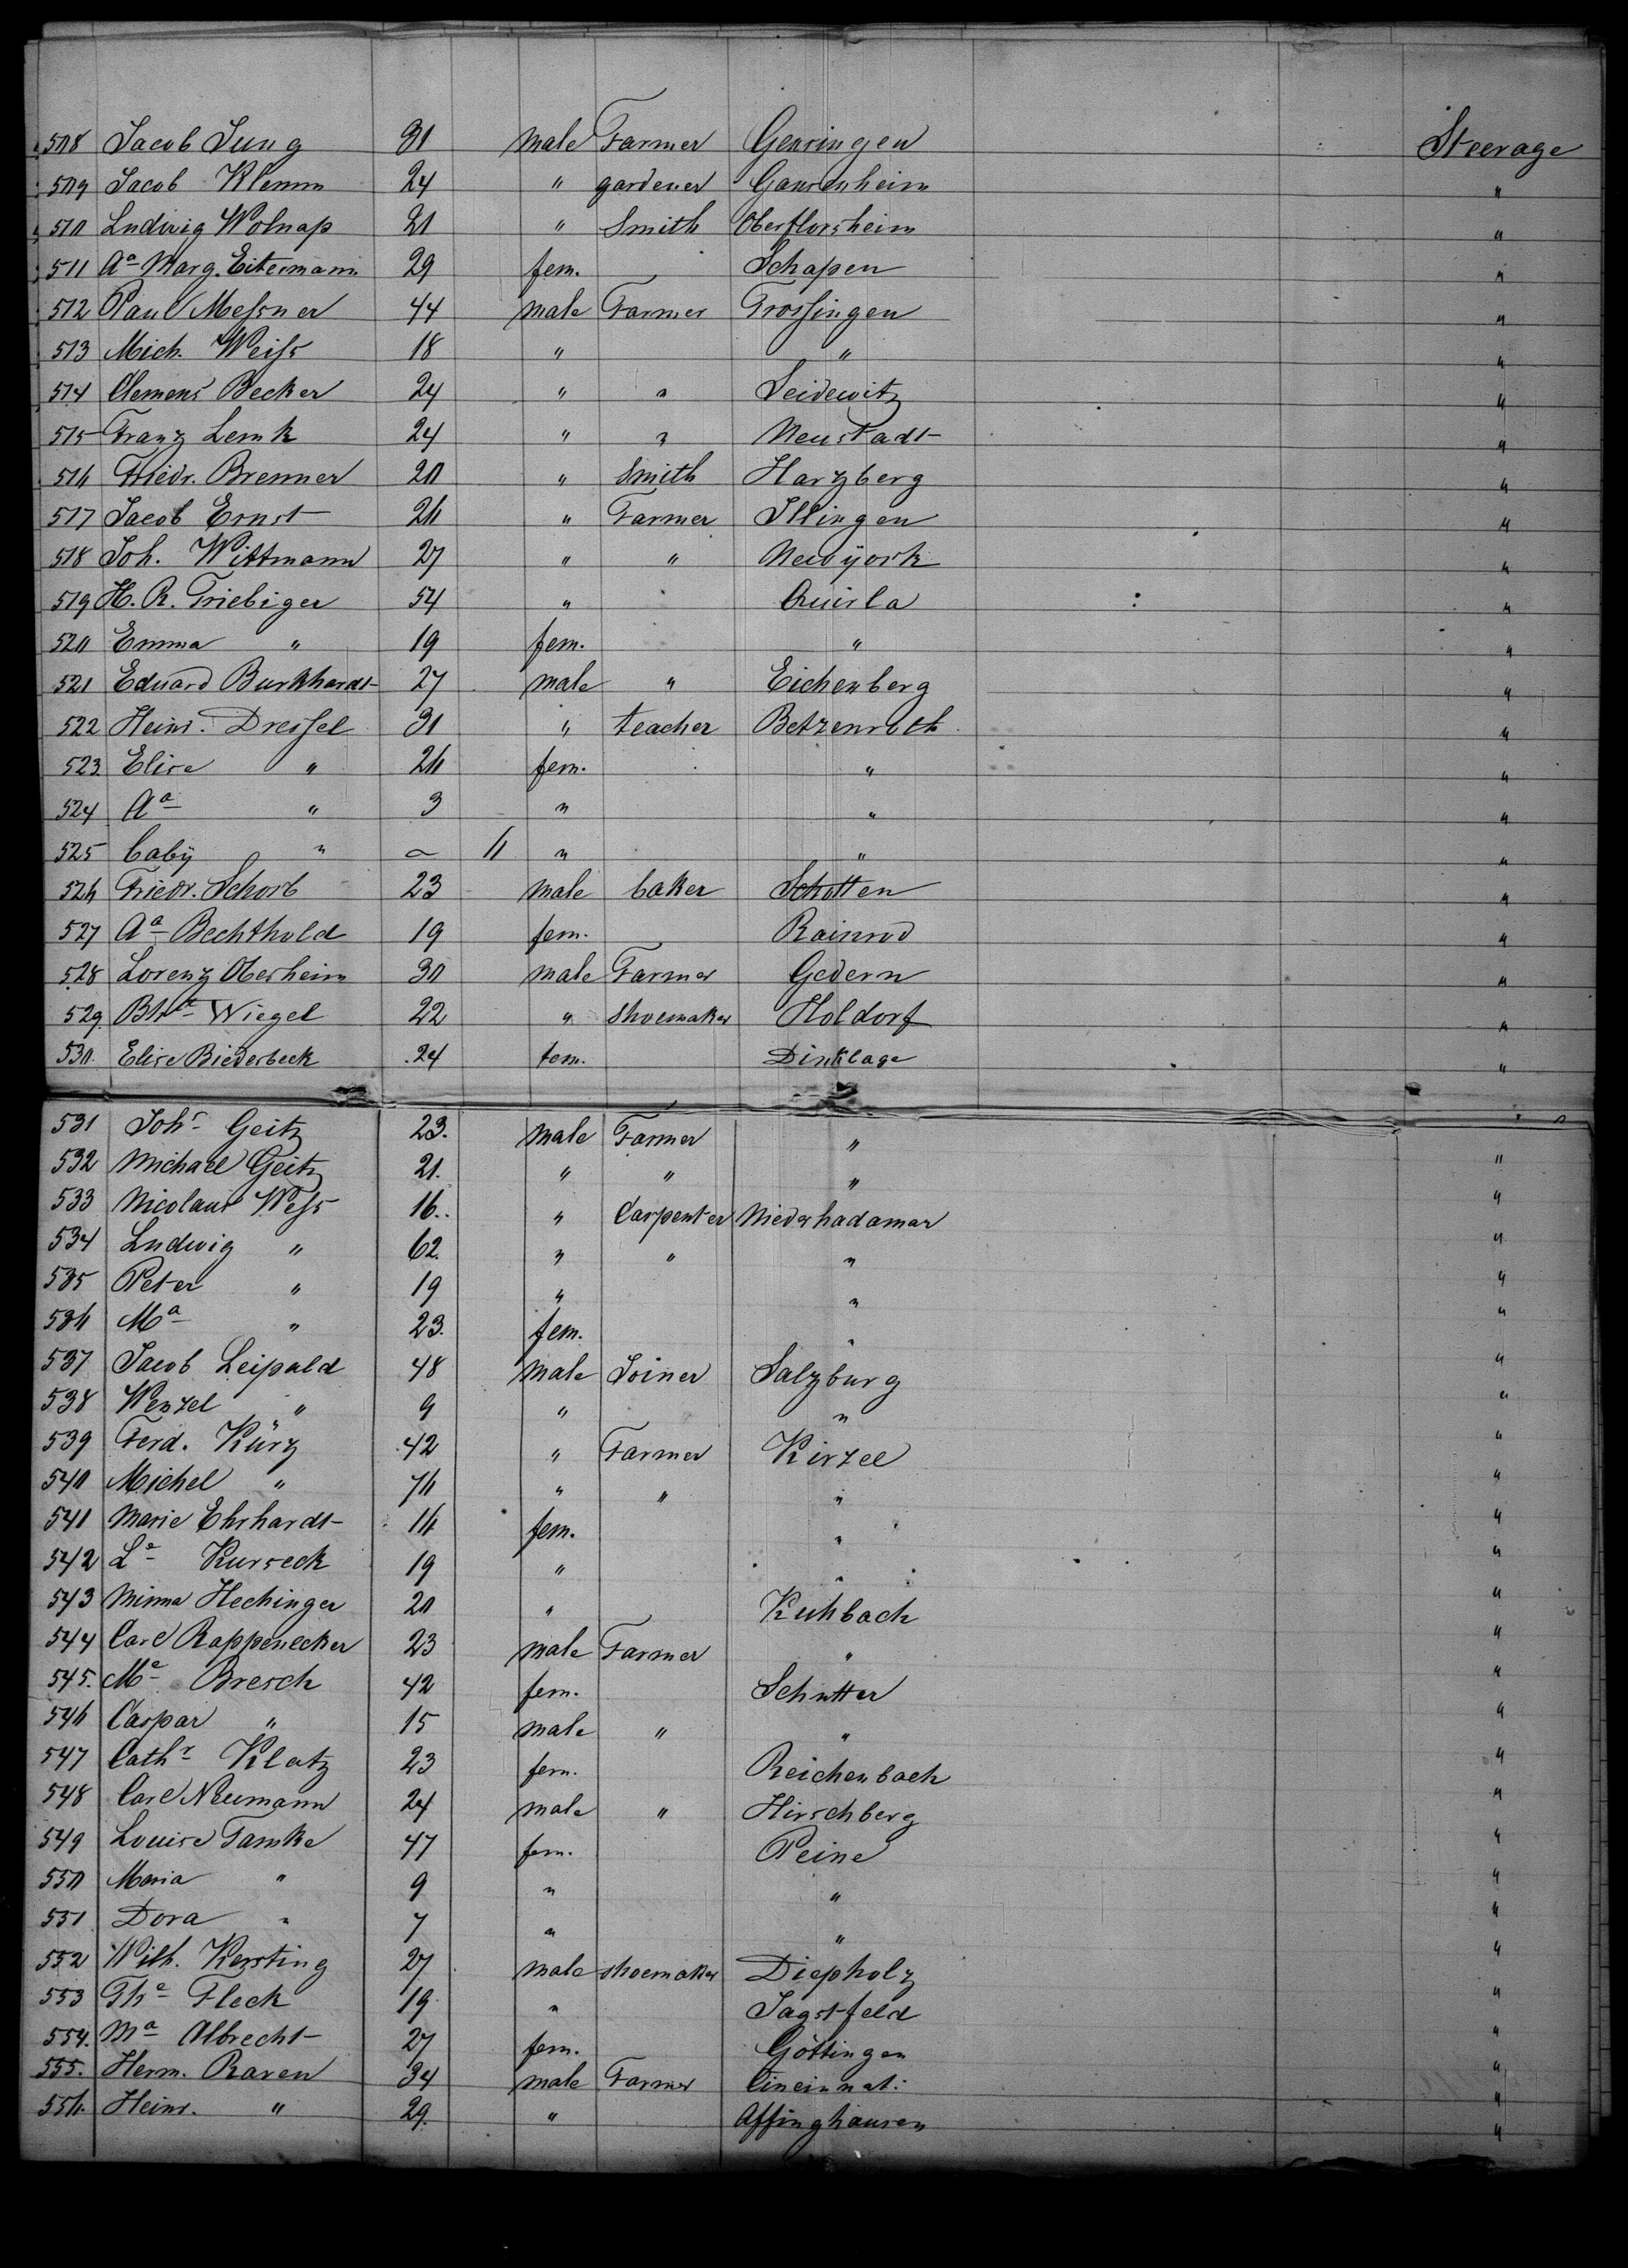 508 Jacob Jung 31 male Farmer Gensingen Steerage
509 Jacob Klemm 24 " gardener Gonsenheim "
510 Ludwig Wolnap 21 " Smith Oberflorsheim "
511 Aª Marg. Eitermann 29 fem. Schapen "
512 Paul Messner 44 male Farmer Trossingen "
513 Mich. Weiss 18 " " "
514 Clemens Becker 24 " " Seidewitz "
515 Franz Lemk 24 " " Neustadt "
516 Friedr. Brenner 20 " Smith Harzberg "
517 Jacob Ernst 26 " Farmer Illingen "
518 Joh. Wittmann 27 " " Newÿork "
519 H. R. Triebiger 54 " Quirla "
520 Emma " 19 fem. " "
521 Eduard Burkhardt 27 male " Eichenberg "
522 Heinr. Dressel 31 " teacher Betzenroth "
523 Elise " 26 fem. " "
524 Aª " 3 " " "
525 babÿ " 6 " " "
526 Friedr. Schorb 23 male baker Schotten "
527 Aª Bechthold 19 fem. Rainrod "
528 Lorenz Oberheim 30 male Farmer Gedern "
529. Wiegel 22 " shoemaker Holdorf "
530. Elise Biederbeck 24 fem. Dinklage "
531 Johˢ Geitz 23. male Farmer " "
532 Michael Geitz 21. " " " "
533 Nicolaus Wess 16.. " Carpenter Niederhadamar "
534 Ludwig " 62. " " " "
535 Peter " 19 " " "
536 Mª " 23. fem. " "
537 Jacob Leipold 48 male Joiner Salzburg "
538 Wenzel " 9 " " "
539 Ferd. Kürz 42 " Farmer Kirzel "
540 Michel " 76 " " " "
541 Marie Ehrhardt 16 fem. " "
542 Lᵉ Kurseck 19 " " "
543 Minna Hechinger 20 " Kuhbach "
544 Carl Rappenecker 23 male Farmer " "
545. Mᵉ Bresch 42 fem. Schutter "
546 Caspar " 15 male " " "
547 Cathʳ Klatz 23 fem. Reichenbach "
548 Carl Neumann 24 male " Hirschberg "
549 Louise Tamke 47 fem. Peine "
550 Maria " 9 " " "
551 Dora " 7 " " "
552 Wilh. Kersting 27 male shoemaker Diepholz "
553 Thᵉ Fleck 19 " Jagstfeld "
554. Mª Albrecht 27 fem. Göttingen "
555. Herm. Raven 34 male Farmer Cincinnati "
556. Heinr. " 29. " Affinghausen "